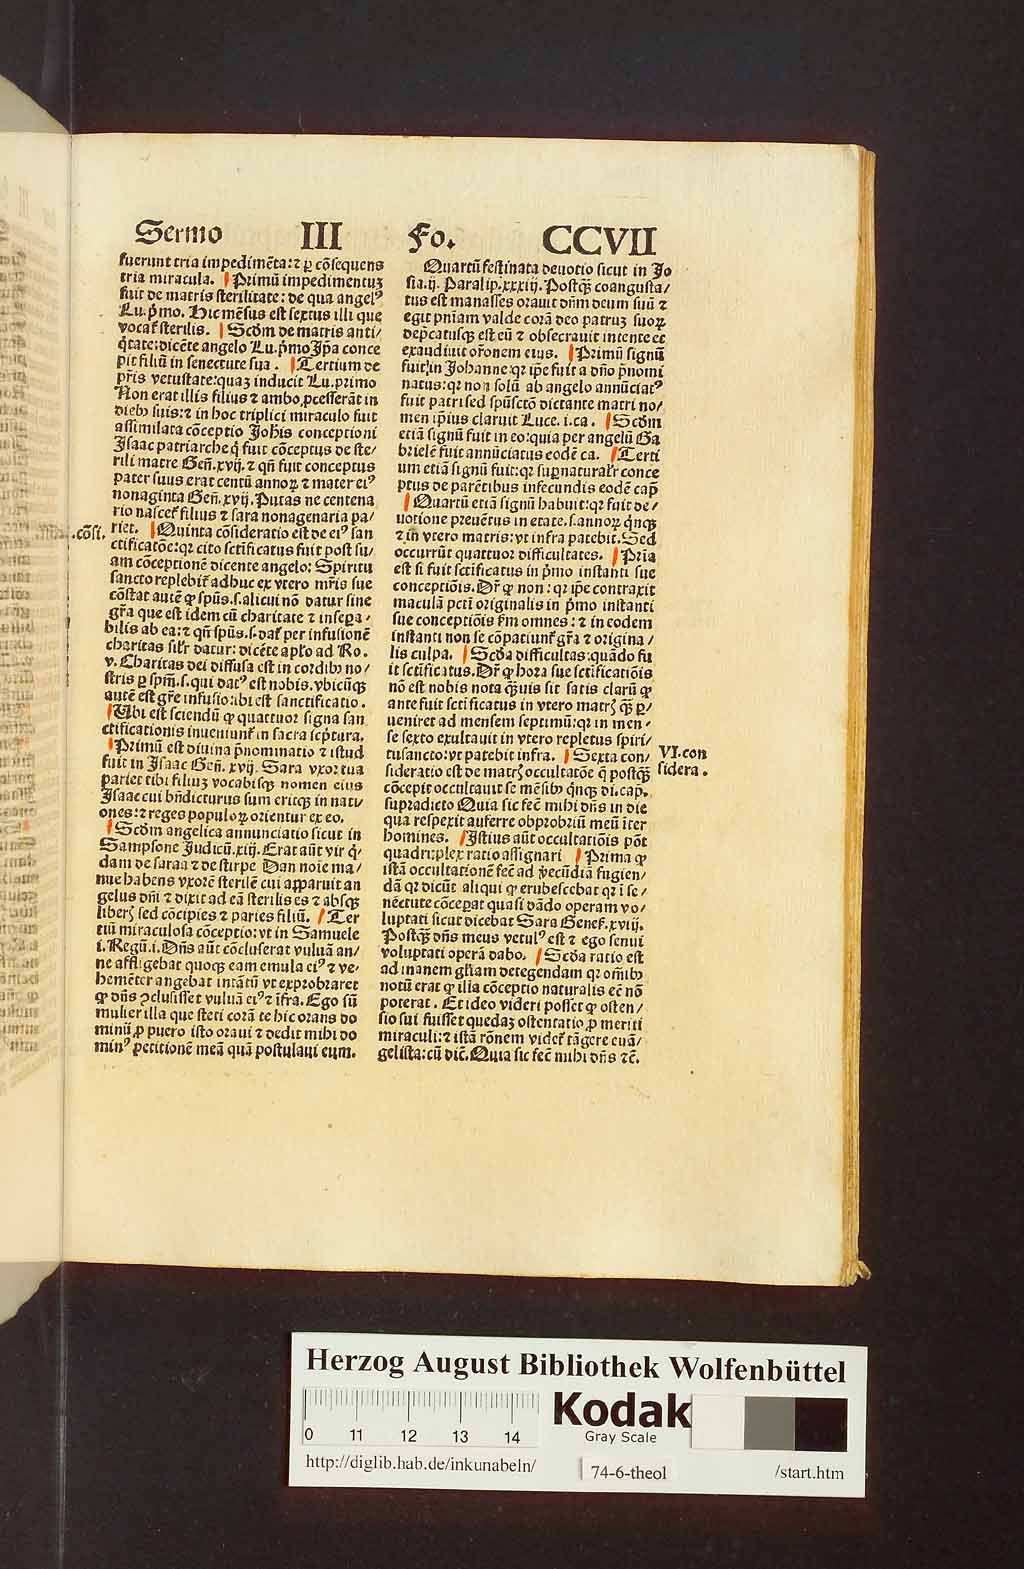 Sermo III Fo. CCVII
fuerunt tria impedimēta: ⁊ ꝑ cōsequens
tria miracula. Primū impedimentuꝫ
fuit de matris sterilitate: de qua angelꝰ
Lu. p̄mo. Hic mēsus est sextus illi que
vocat̄ sterilis. Scd̄m de matris anti/
q̄tate: dicēte angelo Lu. p̄mo Ip̄a conce
pit filiū in senectute sua. Tertium de
pr̄is vetustate: quaꝫ inducit Lu. primo
Non erat illis filius ⁊ ambo ꝓcesserāt in
dieb̄ suis: ⁊ in hoc triplici miraculo fuit
assimilata cōceptio Joh̄is conceptioni
Isaac patriarche q̄ fuit cōceptus de ste/
rili matre Gen̄. xvij. ⁊ qn̄ fuit conceptus
pater suus erat centū annoꝝ ⁊ mater eiꝰ
nonaginta Gen̄. xvij. Putas ne centena
rio nascet̄ filius ⁊ sara nonagenaria pa/
riet. Quinta cōsideratio est de eiꝰ san
ctificatōe: qr cito sctīficatus fuit post su/
am cōceptionē dicente angelo: Spiritu
sancto replebit̄ adhuc ex vtero mr̄is sue
cōstat autē ꝙ spūs. s. alicui nō datur sine
gr̄a que est idem cū charitate ⁊ insepa/
bilis ab ea: ⁊ qn̄ spūs. s. dat̄ per infusionē
charitas sil̄r datur: dicēte apl̄o ad Ro.
v. Charitas dei diffusa est in cordib̄ no/
stris ꝑ spm̄. s. qui datꝰ est nobis. vbicūqꝫ
autē est gr̄e infusio: ibi est sanctificatio.
Ubi est sciendū ꝙ quattuor signa san
ctificationis inueniunt̄ in sacra scp̄tura.
Primū est diuina p̄nominatio ⁊ istud
fuit in Isaac Gen̄. xvij. Sara vxor tua
pariet tibi filiuꝫ vocabisqꝫ nomen eius
Isaac cui bn̄dicturus sum eritqꝫ in nati/
ones: ⁊ reges populoꝝ orientur ex eo.
Scd̄m angelica annunciatio sicut in
Sampsone Judicū. xiij. Erat aūt vir q̄/
dam de saraa ⁊ de stirpe Dan noīe ma/
nue habens vxorē sterilē cui apparuit an
gelus dn̄i ⁊ dixit ad eā sterilis es ⁊ absqꝫ
liberꝭ sed cōcipies ⁊ paries filiū. Ter
tiū miraculosa cōceptio: vt in Samuele
i. Regū. i. Dn̄s aūt cōcluserat vuluā an/
ne affligebat quoqꝫ eam emula eiꝰ ⁊ ve/
hemēter angebat intātū vt exprobraret
ꝙ dn̄s ꝯclusisset vuluā eiꝰ ⁊ īfra. Ego sū
mulier illa que steti corā te hic orans do
minū ꝓ puero isto oraui ⁊ dedit mihi do
minꝰ petitionē meā quā postulaui eum.
.cōsi.
Quartū festinata deuotio sicut in Jo
sia. ij. Paralip. xxxiij. Postqꝫ coangusta/
tus est manasses orauit dn̄m deum suū ⁊
egit pn̄iam valde corā deo patruꝫ suoꝝ
dep̄catusqꝫ est eū ⁊ obsecrauit intente et
exaudiuit or̄onem eius. Primū signū
fuit in Johanne: qr ip̄e fuit a dn̄o p̄nomi
natus: qr non solū ab angelo annūciatꝰ
fuit patri sed spūsctō dictante matri no/
men ip̄ius claruit Luce. i. ca. Scd̄m
etiā signū fuit in eo: quia per angelū Ga
brielē fuit annūciatus eodē ca. Terti
um etiā signū fuit: qr suꝑnatural̄r conce
ptus de parētibus infecundis eodē cap̄
Quartū etiā signū habuit: qr fuit de/
uotione preuētus in etate. s. annoꝝ q̄nqꝫ
⁊ in vtero matris: vt infra patebit. Sed
occurrūt quattuor difficultates. Prīa
est si fuit sctīficatus in p̄mo instanti sue
conceptiōis. Dr̄ ꝙ non: qr ipe contraxit
maculā pctī originalis in p̄mo instanti
sue conceptiōis fm̄ omnes: ⁊ in eodem
instanti non se cōpatiunt̄ gr̄a ⁊ origina/
lis culpa. Scd̄a difficultas: quādo fu
it sctīficatus. Dr̄ ꝙ hora sue sctificatiōis
nō est nobis nota qꝫuis sit satis clarū ꝙ
ante fuit sctificatus in vtero matrꝭ qꝫ ꝑ/
ueniret ad mensem septimū: qr in men/
se sexto exultauit in vtero repletus spiri/
tusancto: vt patebit infra. Sexta con/
sideratio est de matrꝭ occultatōe q̄ postqꝫ
cōcepit occultauit se mēsib̄ q̄nqꝫ di. cap.
supradicto Quia sic fec̄ mihi dn̄s in die
qua respexit auferre obprobriū meū īter
homines. Istius aūt occultatiōis pōt
quadruplex ratio assignari Prima ꝙ
istā occultationē fec̄ ad v̄ecūdiā fugien/
dā qr dicūt aliqui ꝙ erubescebat qr ī se/
nectute cōceꝑat quasi dādo operam vo/
luptati sicut dicebat Sara Genes̄. xviij.
Postqꝫ dn̄s meus vetulꝰ est ⁊ ego senui
voluptati operā dabo. Scd̄a ratio est
ad inanem gl̄iam detegendam qr om̄ib̄
notū erat ꝙ illa cōceptio naturalis eē nō
poterat. Et ideo videri posset ꝙ osten/
sio sui fuisset quedaꝫ ostentatio ꝓ meriti
miraculi: ⁊ istā rōnem videt̄ tāgere euā/
gelista: cū dic̄. Quia sic fec̄ mihi dn̄s ⁊c̄.
VI. con
sidera.
Herzog August Bibliothek Wolfenbüttel
0 11 12 13 14
Kodak
Gray Scale
http://diglib.hab.de/inkunabeln/
74-6-theol
/start.htm